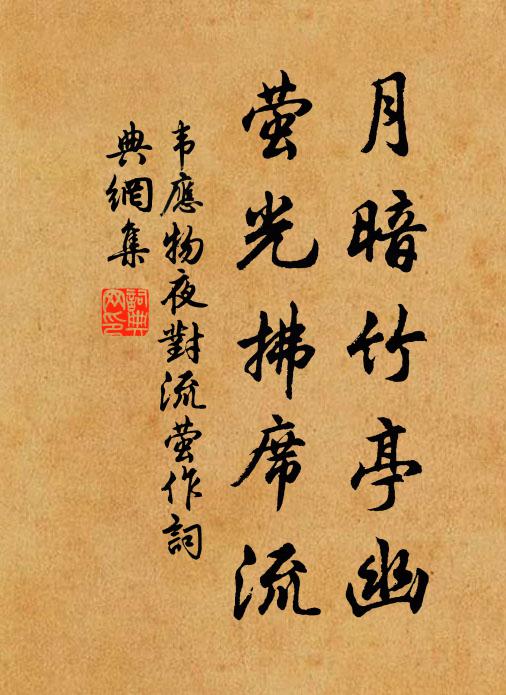 月暗竹亭幽
萤光拂席流
韦應物夜對流萤作詞
典網集
詞典网印